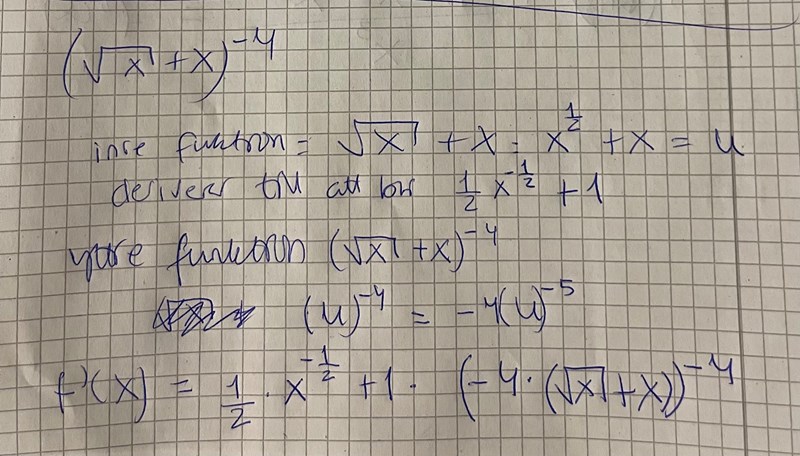 (√x + x)^-4
inre funktion = √x + x = x^1/2 + x = u
deriveras till att bli 1/2 x^-1/2 + 1
yttre funktion (√x + x)^-4
(u)^-4 = -4(u)^-5
f'(x) = 1/2 · x^-1/2 + 1 · (-4 · (√x + x))^-4